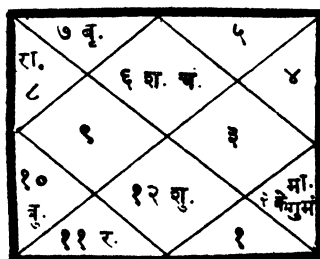 ७ बृ.
५
रा.
८
६ श. चं.
४
९
३
१०
बु.
१२ शु.
मां.
११ र.
१